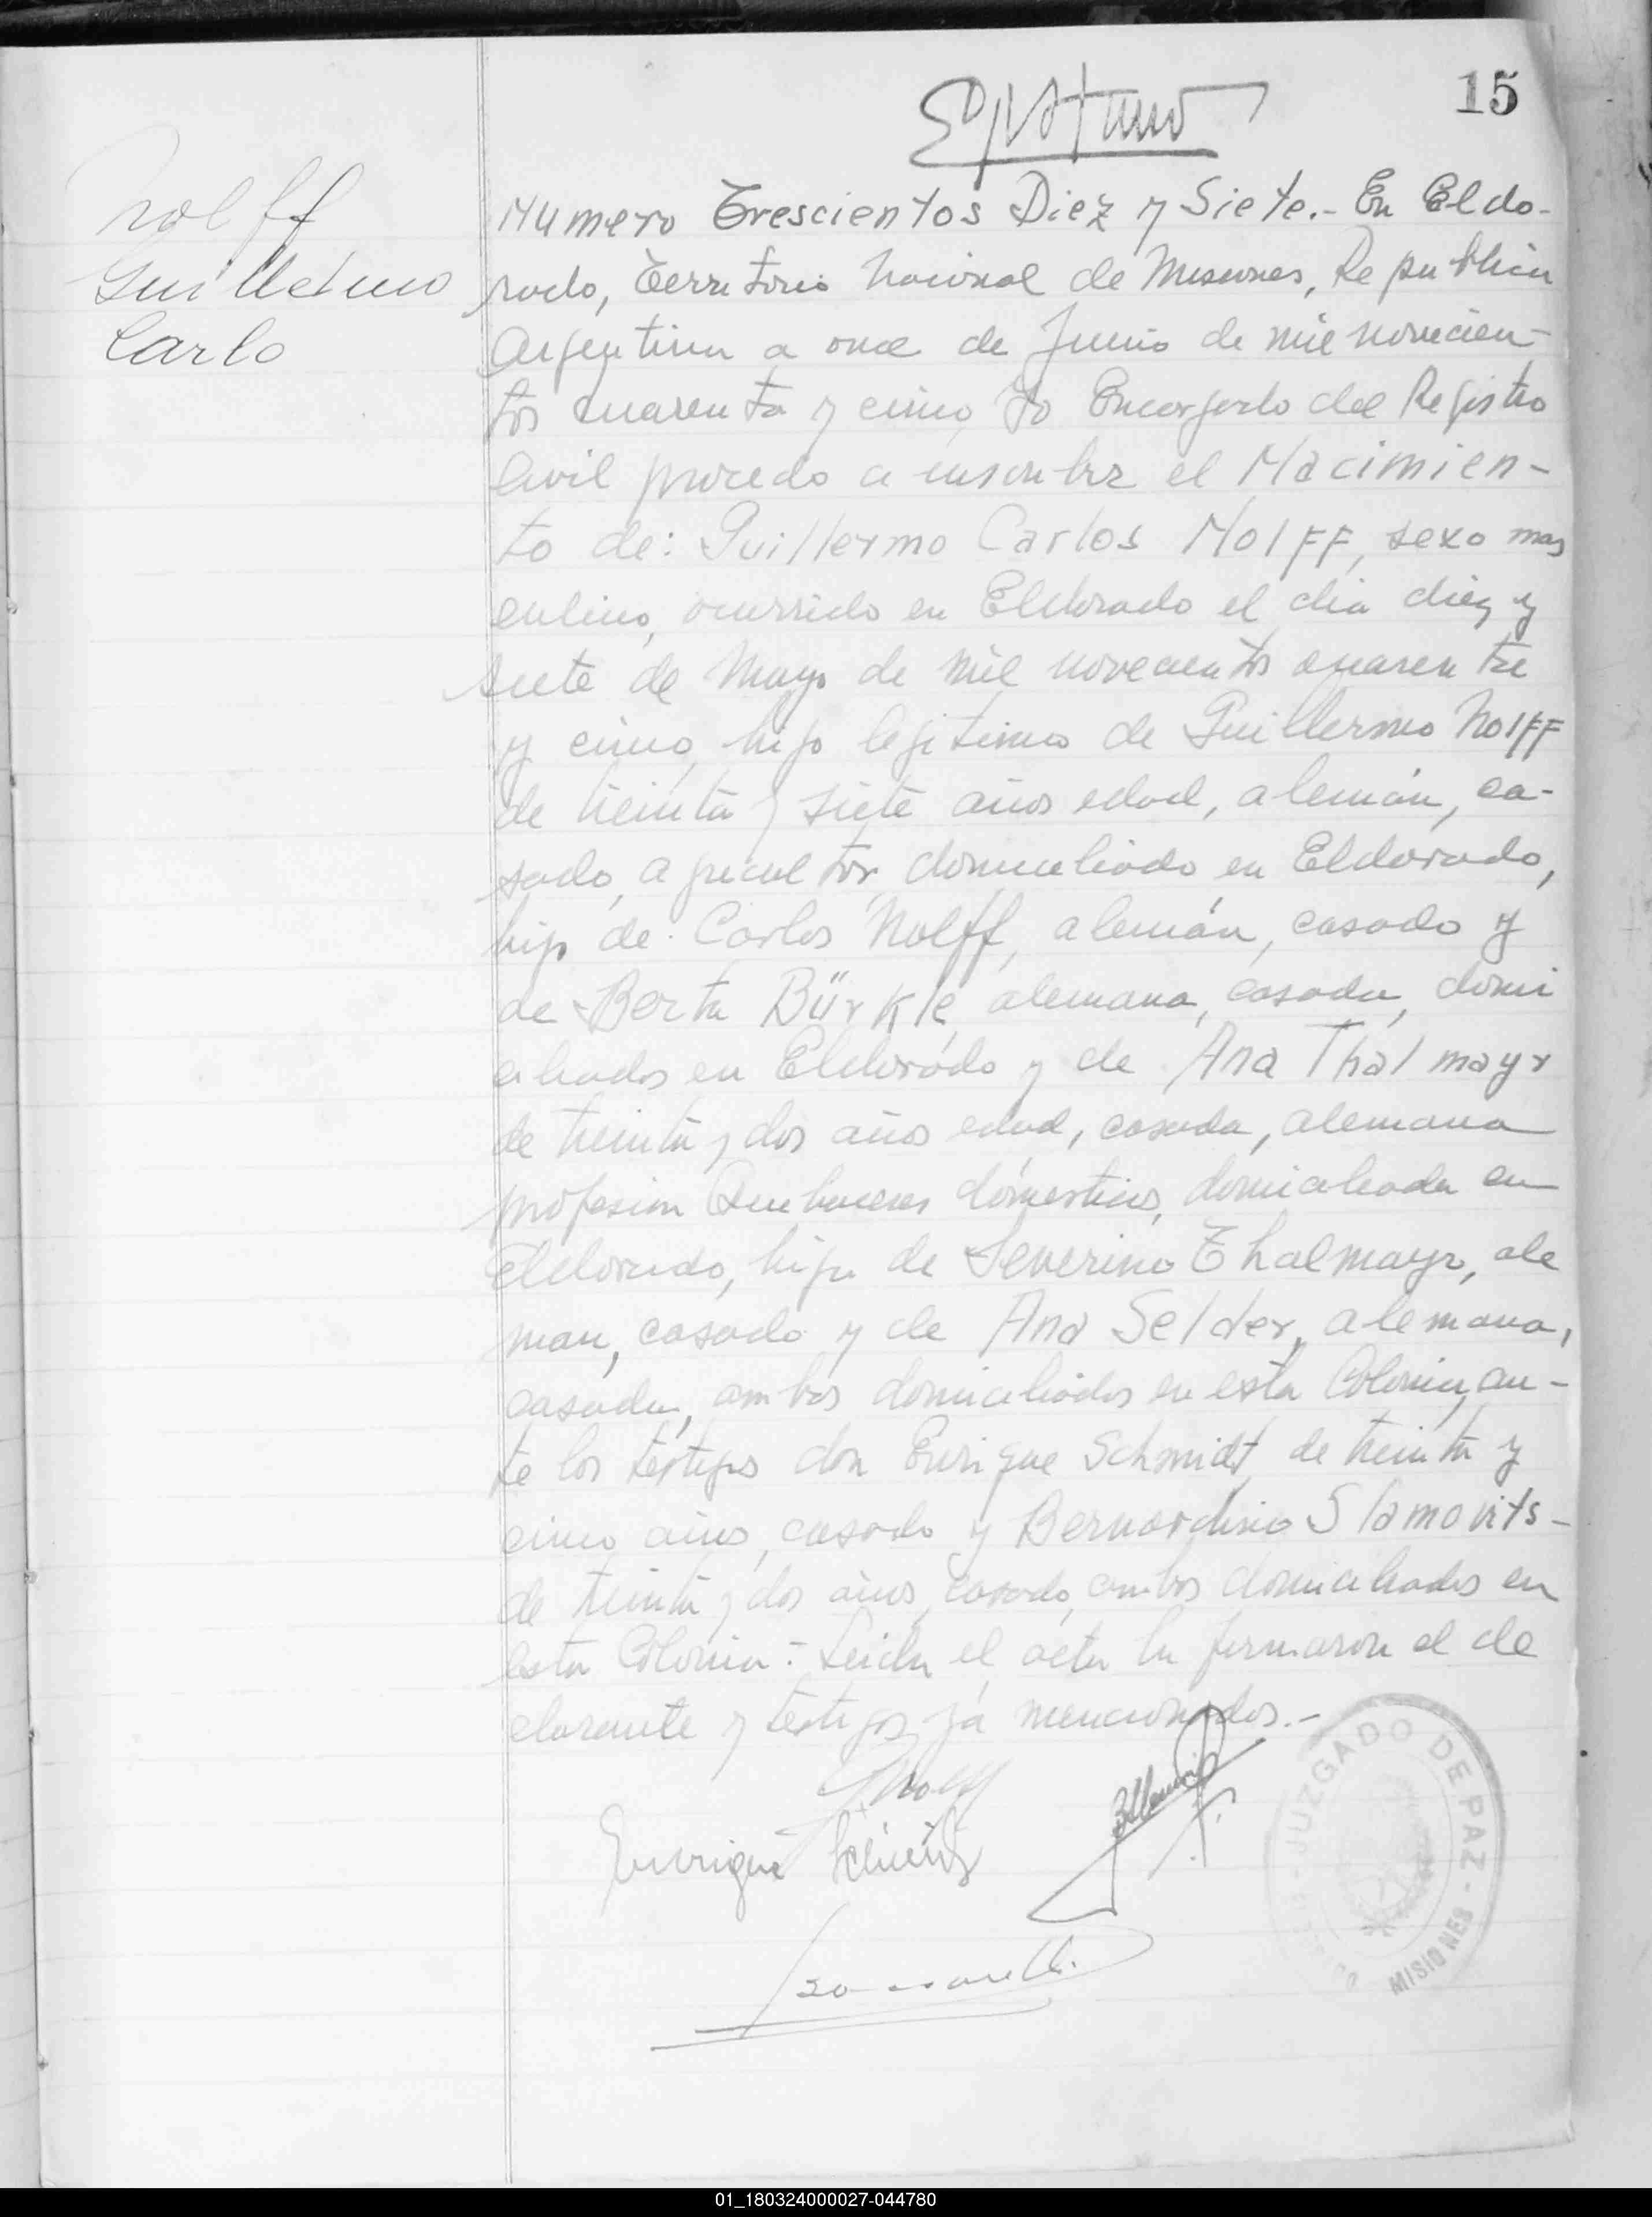 15
Nolff
Guillermo
Carlo
Numero Trescientos Diez y Siete.- En Eldo-
rado, Territorio Nacional de Misiones, Republica
Argentina a once de Junio de mil novecien-
tos cuarenta y cinco, Yo Encargado del Registro
Civil procedo a inscribir el Nacimien-
to de: Guillermo Carlos Nolff, sexo mas
culino, ocurrido en Eldorado el dia diez y
siete de Mayo de mil novecientos cuarenta
y cinco, hijo legitimo de Guillermo Nolff
de treinta y siete años edad, alemán, ca-
sado, agricultor, domiciliado en Eldorado,
hijo de Carlos Nolff, alemán, casado y
de Berta Bürkle, alemana, casada, domi
ciliados en Eldorado y de Ana Thalmayr
de treinta y dos años edad, casada, alemana
profesion Quehaceres domesticos, domiciliada en
Eldorado, hija de Severino Thalmayr, ale
man, casado y de Ana Selder, alemana,
casada, ambos domiciliados en esta Colonia, an-
te los testigos don Enrique Schmidt, de treinta y
cinco años, casado y Bernardino Slamovits-
de treinta y dos años, casado, ambos domiciliados en
esta Colonia.- Leida el acta la firmaron el de
clarante y testigos ya mencionados.-
GNolff
Enrique Schmidt
JUZGADO DE PAZ - MISIONES
01_180324000027-044780